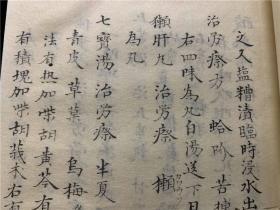 之又塩糟漬臨時浸水出
治労瘵方 蛤蚧 苦楝
右四味為丸白湯送下日
獺肝丸 治労瘵 獺
為丸
七寳湯 治労瘵 半夏
青皮 草菓 烏梅
法有热加柴胡黄芩有
有積塊加柴胡莪朮右有